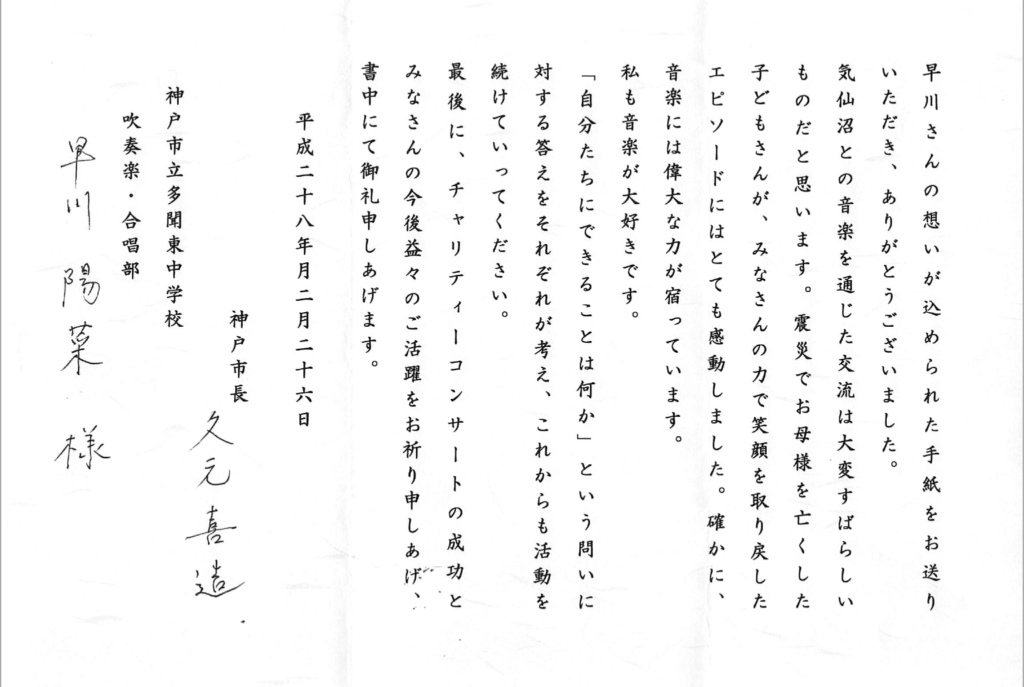 早川さんの想いが込められた手紙をお送り
いただき、ありがとうございました。
気仙沼との音楽を通じた交流は大変すばらしい
ものだと思います。震災でお母様を亡くした
子どもさんが、みなさんの力で笑顔を取り戻した
エピソードにはとても感動しました。確かに、
音楽には偉大な力が宿っています。
私も音楽が大好きです。
「自分たちにできることは何か」という問いに
対する答えをそれぞれが考え、これからも活動を
続けていってください。
最後に、チャリティーコンサートの成功と
みなさんの今後益々のご活躍をお祈り申しあげ、
書中にて御礼申しあげます。
平成二十八年月二月二十六日
神戸市長
久元喜造
神戸市立多聞東中学校
吹奏楽・合唱部
早川陽菜様